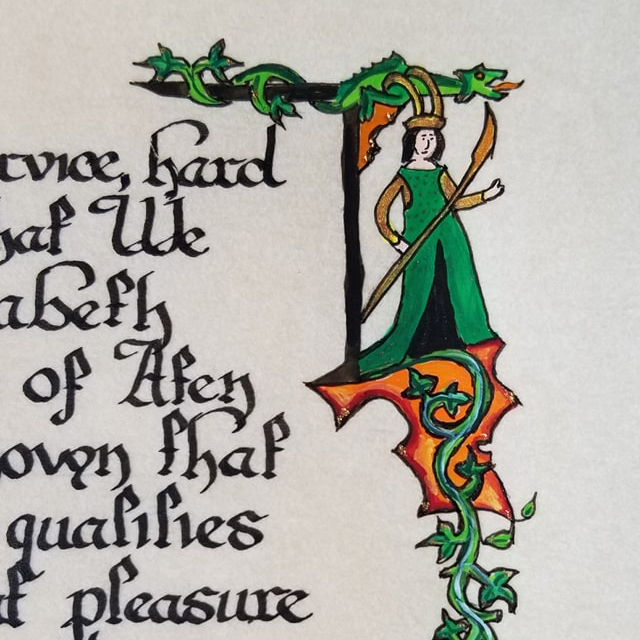 rvice, hard
hat We
abeth
of Aten
oven that
qualities
t pleasure